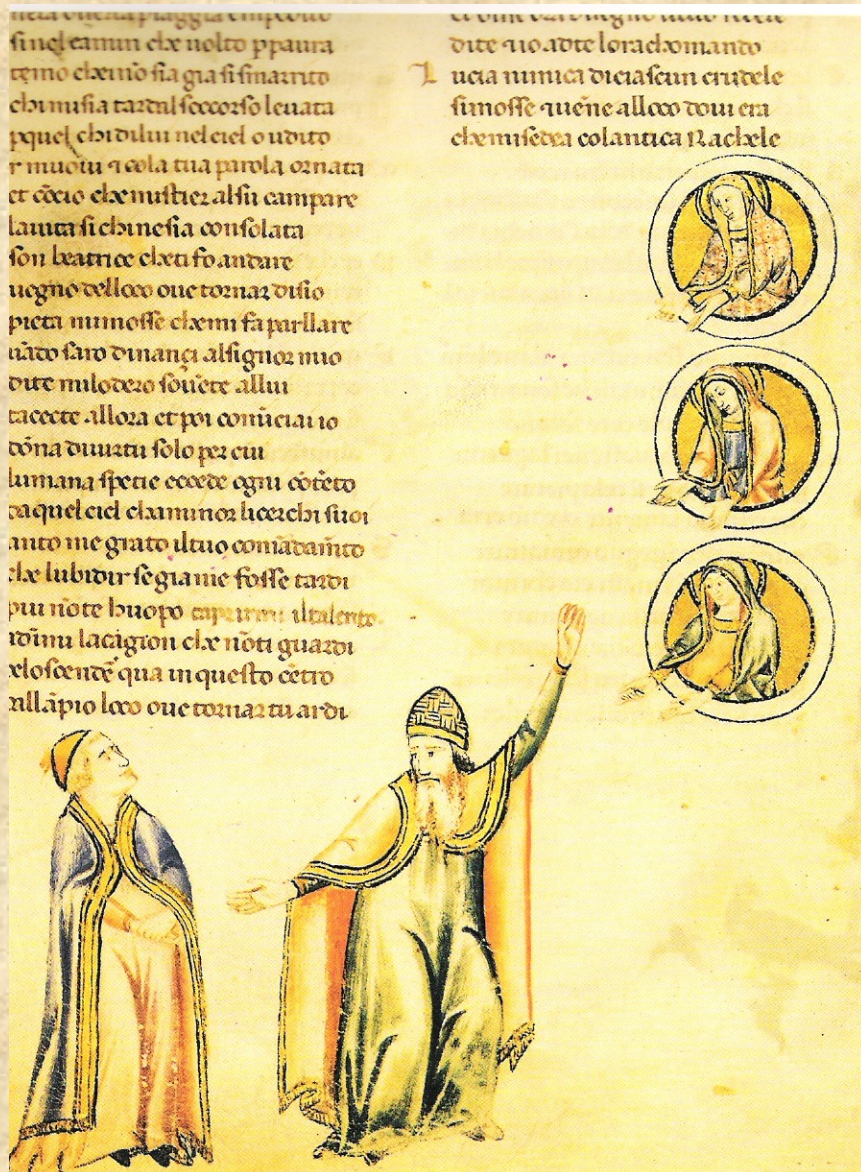 piaggia
sinel camin che uolto ppaura
temo che nō sia gia si smarrito
chi misia tardal soccorso leuata
pquel chi di lui nel ciel o udito
r muoui 7 cola tua parola ornata
et cōcio che mistier alsu campare
laiuta si chi nesia consolata
son beatrice cheti fo andare
uegno delloco oue tornar disio
pieta mi mosse che mi fa parllare
saro dinançi alsignor mio
dite mi lodero souēte allui
tacecte allora et poi comīciai io
dōna diuirtu solo per cui
lumana spetie eccede ogni cōtēto
daquel ciel cha minor li cerchi suoi
anto me grato iltuo comādamīto
che lubidir se gia nie fosse tardi
piu nōte huopo iltalento.
la cagion che nōti guardi
scendē qua in questo cētro
loco oue tornar tu ardi
dite 7 io adte loracchomando
Lucia nimica di ciascun crudele
simosse 7 uēne alloco doui era
che misedea colantica Rachele